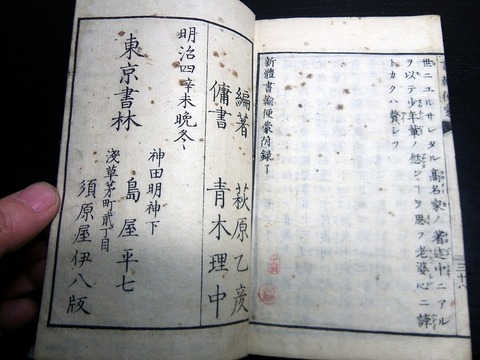 世ニユルサレタル高名家ノ著述中ニアル
ヲ以テ少年輩ノ惑ンーヲ思フ老婆心ニ諄
トカクハ贅シヌ
新體書翰便蒙附録了
編著 萩原乙彦
傭書 青木理中
明治四辛未晩冬
東京書林
神田明神下
島屋平七
淺草茅町貳丁目
須原屋伊八版